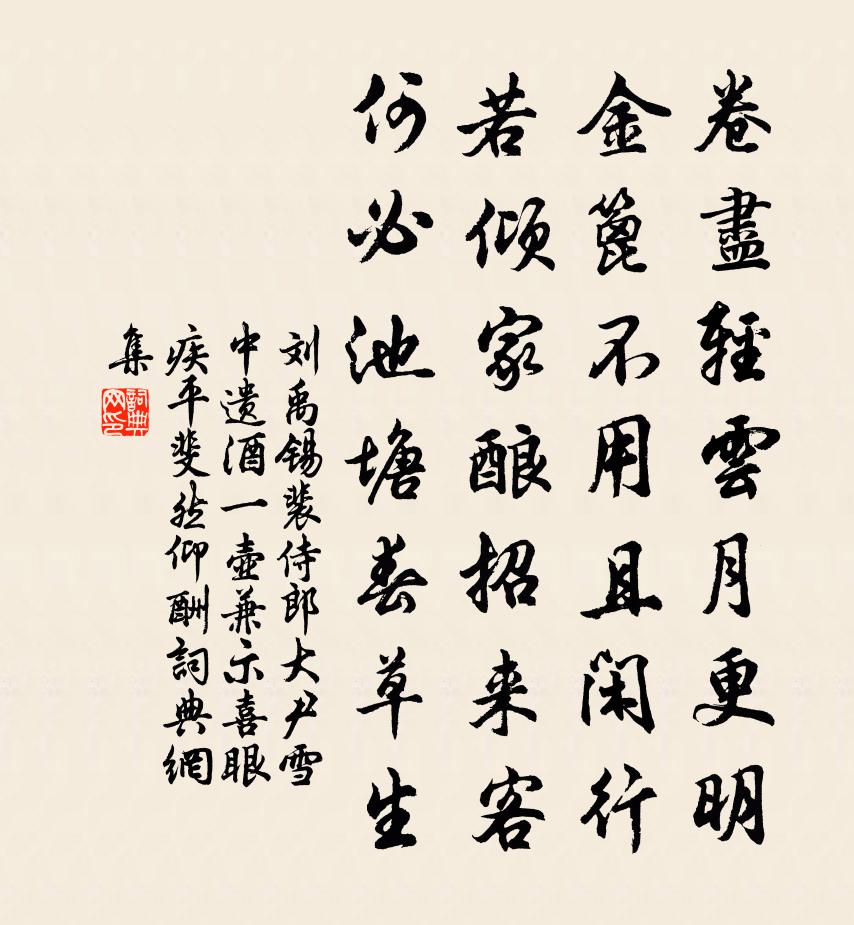 卷盡輕雲月更明
金篦不用且閑行
若倾家酿招来客
何必池塘春草生
刘禹锡裴侍郎大尹雪
中遗酒一壶兼示喜眼
疾平斐然仰酬詞典網
集
詞典
网印